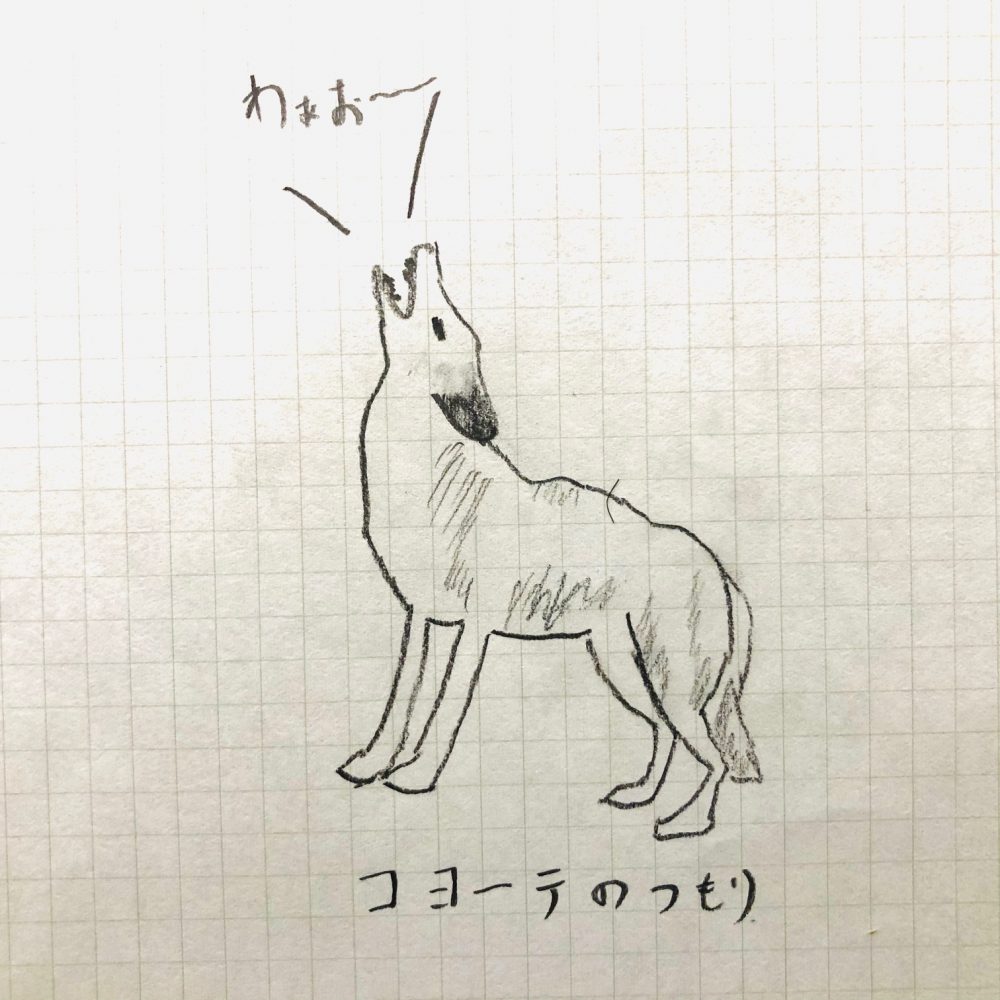 わぁお〜
コヨーテのつもり